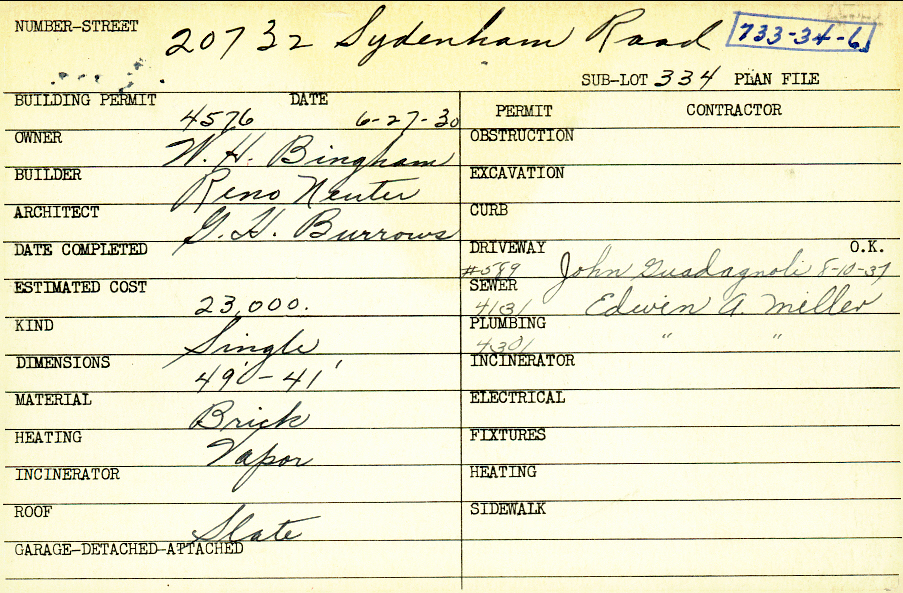 NUMBER-STREET 20732 Sydenham Road 733-34-6
SUB-LOT 334 PLAN FILE
BUILDING PERMIT 4576 DATE 6-27-30
PERMIT CONTRACTOR
OWNER W. H. Bingham
OBSTRUCTION
BUILDER Reno Neuter
EXCAVATION
ARCHITECT G. H. Burrows
CURB
DATE COMPLETED
DRIVEWAY #589 John Guadagnoli O.K. 8-10-37
ESTIMATED COST 23,000.
SEWER 4131 Edwin A. Miller
KIND Single
PLUMBING 4301 " "
DIMENSIONS 49'-41'
INCINERATOR
MATERIAL Brick
ELECTRICAL
HEATING Vapor
FIXTURES
INCINERATOR
HEATING
ROOF Slate
SIDEWALK
GARAGE-DETACHED-ATTACHED